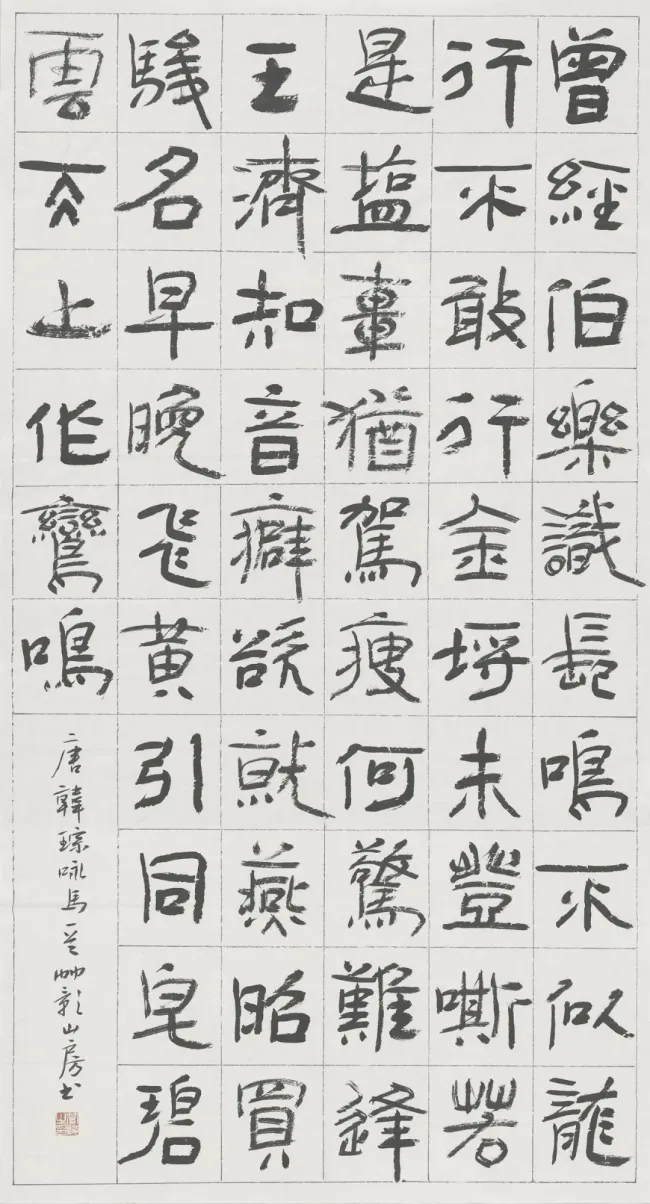 曾經伯樂識長鳴不似龍
行不敢行金埒未登嘶若
是塩車猶駕瘦何驚難逢
王濟知音癖欲就燕昭買
駿名早晚飛黃引同皂碧
雲天上作鸞鳴
唐韓琮咏馬一艸影山房书